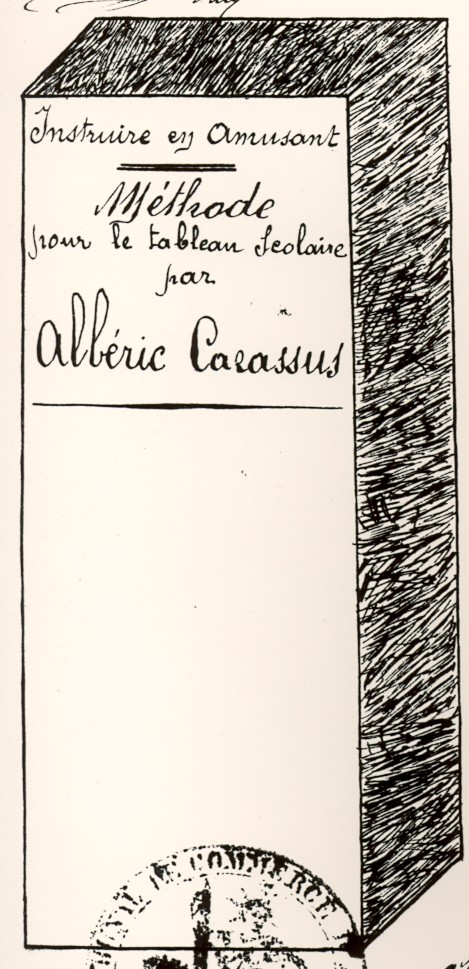 Instruire en Amusant
Méthode
pour le tableau scolaire
par
Albéric Cazassus
DE COMMERCE